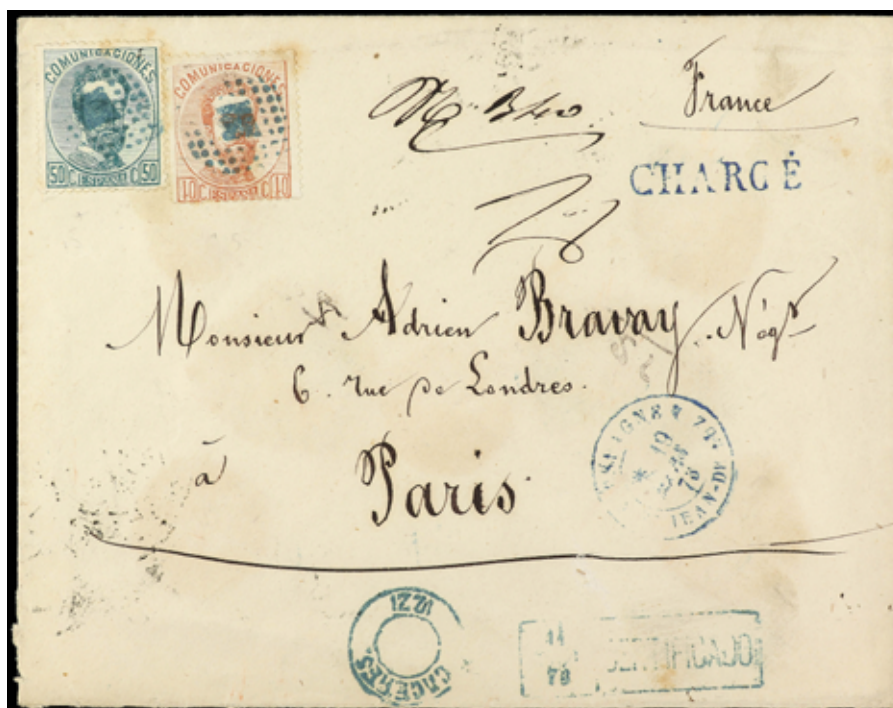 COMUNICACIONES
50 C. ESPAÑA C. 50
COMUNICACIONES
40 C. ESPAÑA C. 40
France
CHARGÉ
Monsieur Adrien Bravay Négt
6. rue de Londres.
à
Paris
19
73
CACERES
CERTIFICADO